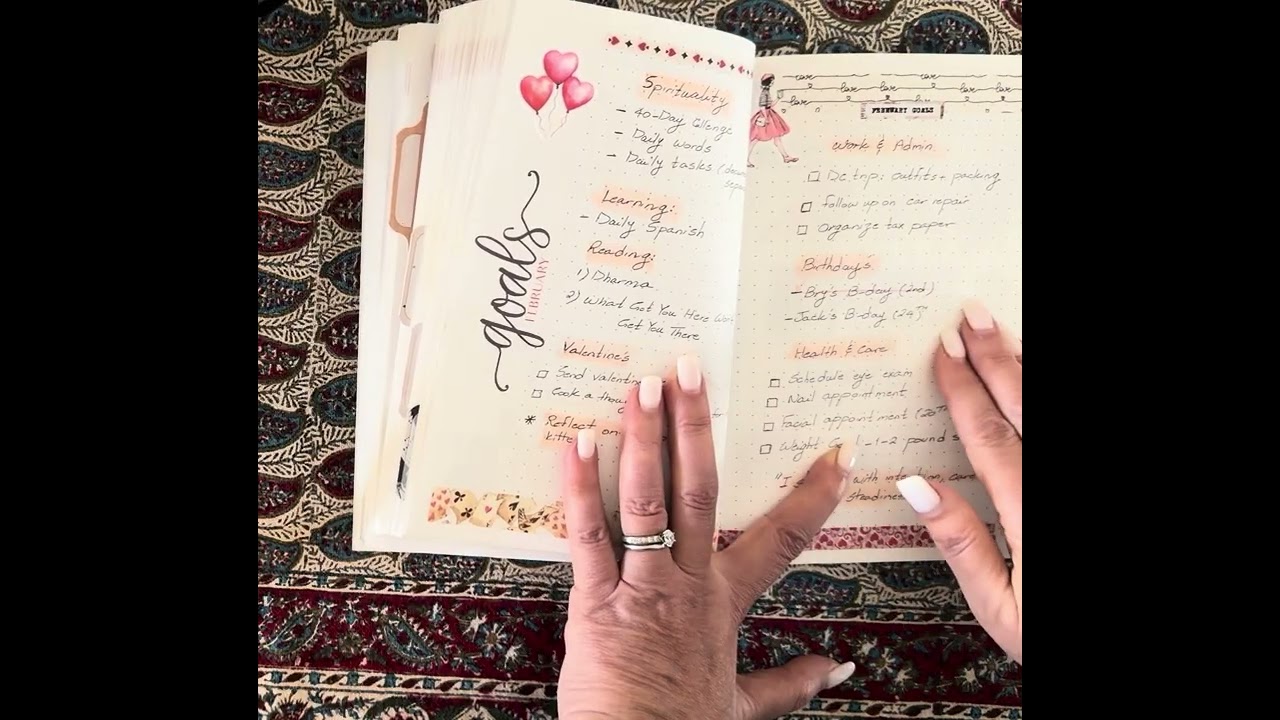 goals
FEBRUARY
Spirituality
- 40-Day
- Daily words
- Daily tasks
Learning:
- Daily Spanish
Reading:
1) Dharma
2) What Got You Here
Get You There
Valentine's
Send
Cook a
* Reflect on
love love love
love love love love
love
FEBRUARY GOALS
Work & Admin
Dc trip: outfits + packing
follow up on car repair
Organize tax paper
Birthdays
- Bry's B-day (2nd)
- Jack's B-day (24th
Health & Care
Schedule eye exam
Nail appointment
Facial appointment (26th
Weight 1-2 pound
"I with intention, care